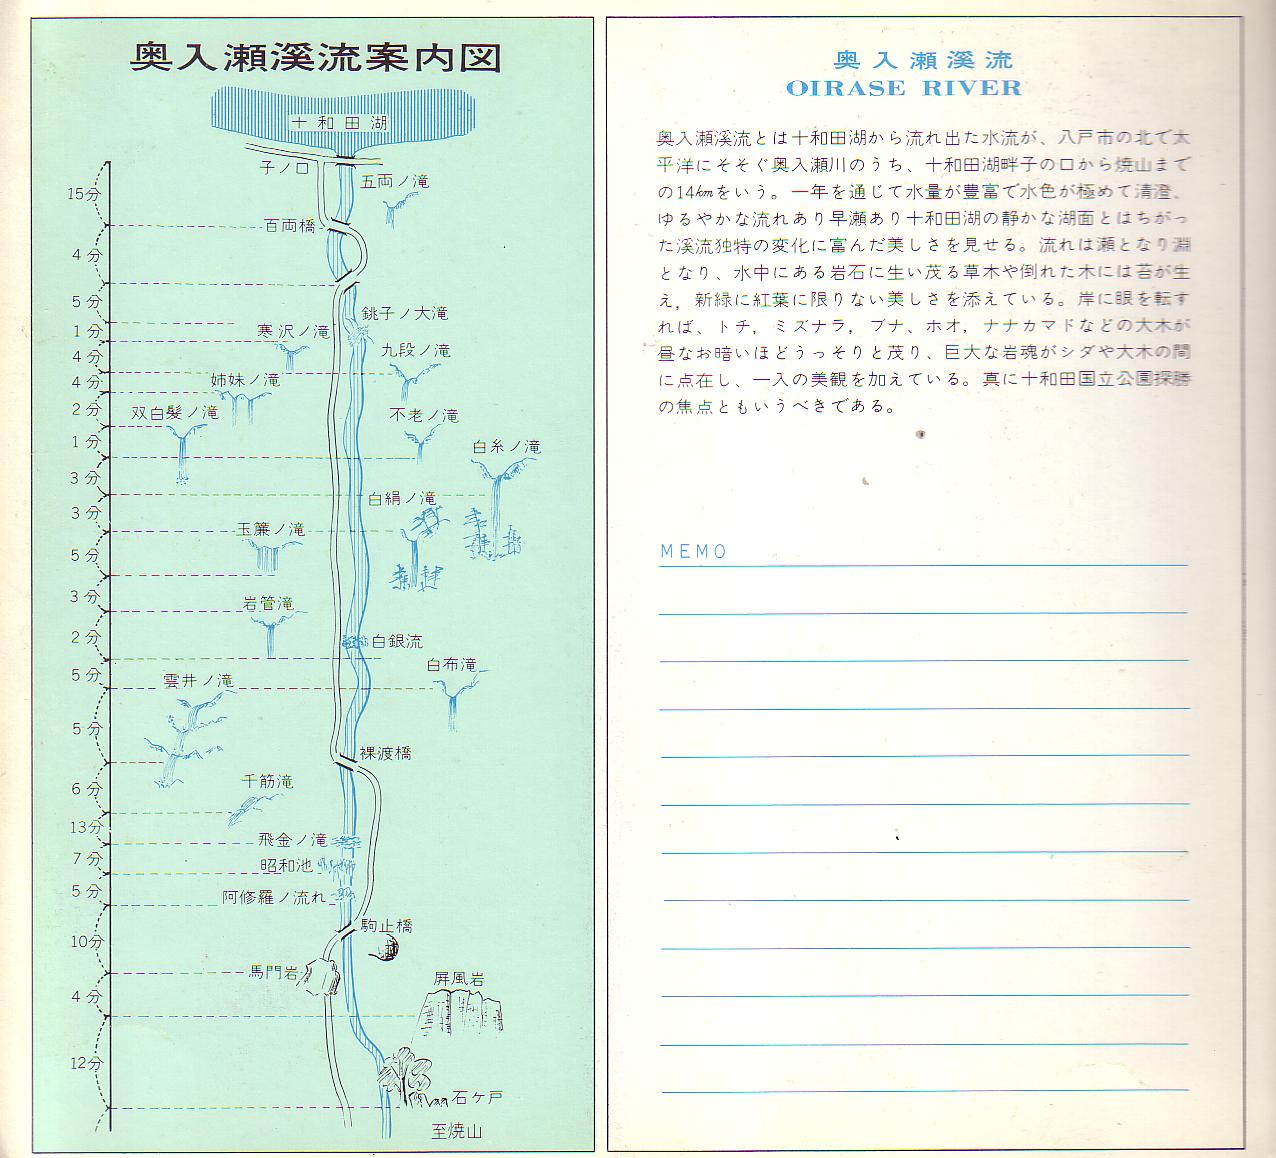 奥入瀬溪流案内図
十和田湖
子ノ口
15分
五両ノ滝
百両橋
4分
5分
銚子ノ大滝
1分
寒沢ノ滝
4分
九段ノ滝
4分
姉妹ノ滝
2分
双白髪ノ滝
不老ノ滝
1分
白糸ノ滝
3分
白絹ノ滝
3分
玉簾ノ滝
5分
3分
岩管滝
2分
白銀流
白布滝
5分
雲井ノ滝
5分
裸渡橋
千筋滝
6分
13分
飛金ノ滝
7分
昭和池
5分
阿修羅ノ流れ
駒止橋
10分
馬門岩
屏風岩
4分
12分
石ケ戸
至焼山
奥入瀬溪流
OIRASE RIVER
奥入瀬溪流とは十和田湖から流れ出た水流が、八戸市の北で太
平洋にそそぐ奥入瀬川のうち、十和田湖畔子の口から焼山まで
の14㎞をいう。一年を通じて水量が豊富で水色が極めて清澄、
ゆるやかな流れあり早瀬あり十和田湖の静かな湖面とはちがっ
た溪流独特の変化に富んだ美しさを見せる。流れは瀬となり淵
となり、水中にある岩石に生い茂る草木や倒れた木には苔が生
え，新緑に紅葉に限りない美しさを添えている。岸に眼を転す
れば、トチ，ミズナラ，ブナ、ホオ，ナナカマドなどの大木が
昼なお暗いほどうっそりと茂り、巨大な岩魂がシダや大木の間
に点在し、一入の美観を加えている。真に十和田国立公園探勝
の焦点ともいうべきである。
MEMO